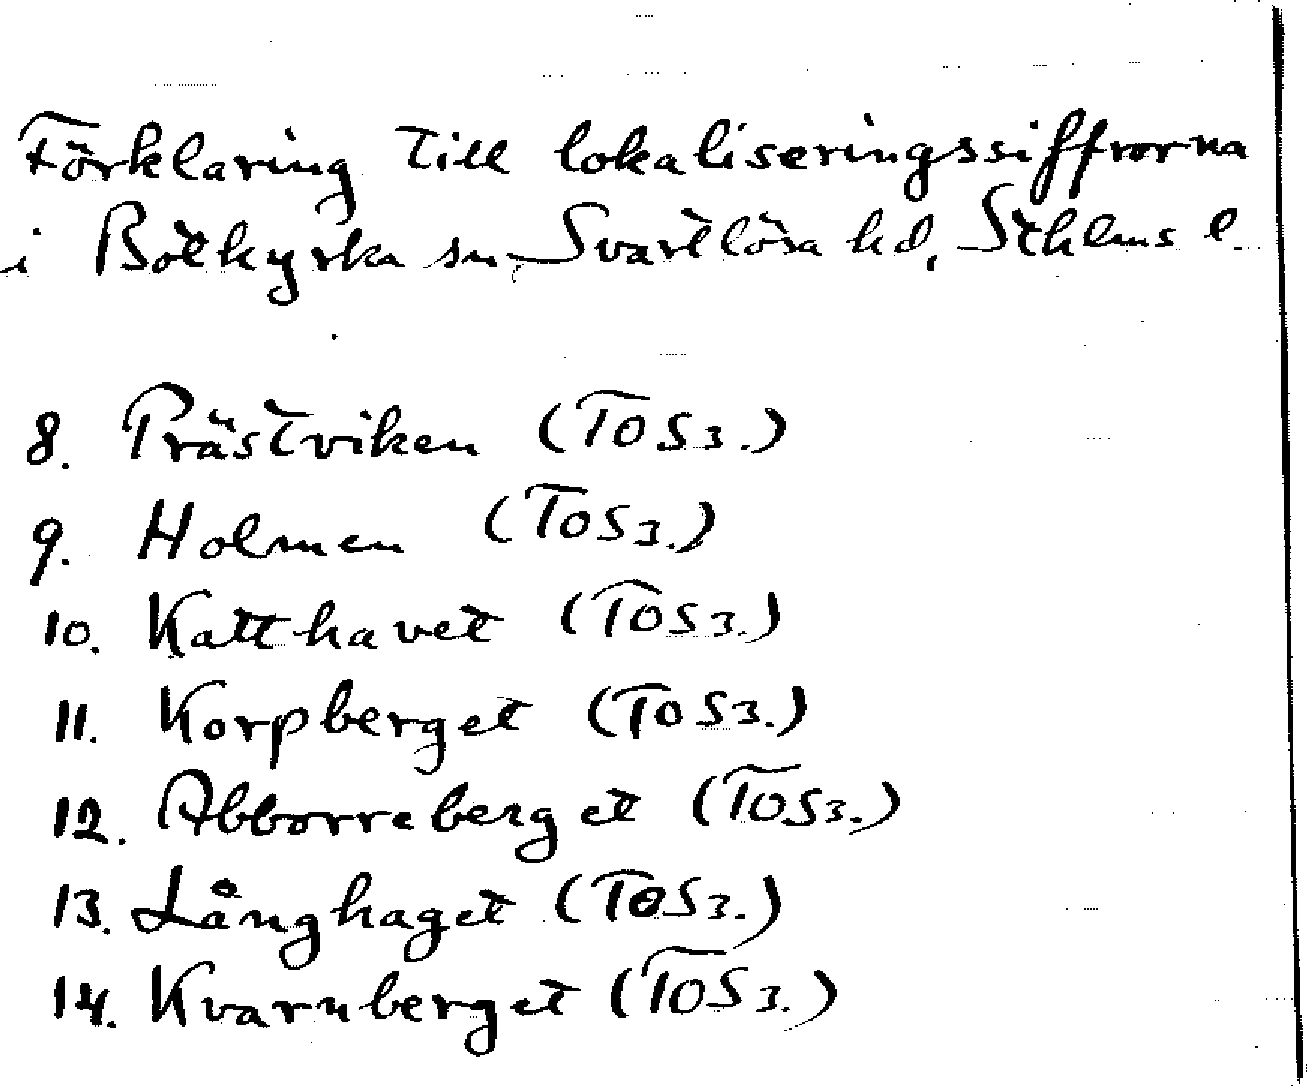 Förklaring till lokaliseringssiffrorna
i Botkyrka sn Svartlösa hd, Sthlms l.
8. Prästviken (TOS3.)
9. Holmen (TOS3.)
10. Katthavet (TOS3.)
11. Korpberget (TOS3.)
12. Abborreberget (TOS3.)
13. Långhaget (TOS3.)
14. Kvarnberget (TOS3.)